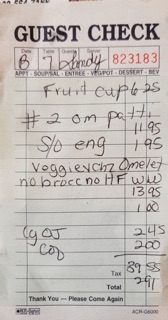 GUEST CHECK
Date Table Guests Server
B 7 Brandy 823183
APPT - SOUP/SAL - ENTREE - VEG/POT - DESSERT - BEV
Fruit cup 6 25
#2 om patti
11 95
S/o eng 1 95
Veggie w chz Omelet
no brocc no HF WW
13 95
1.00
Lg OJ 2 45
Cof 2 00
39 55
Tax 2 91
Total
Thank You — Please Come Again
ACR-G6000